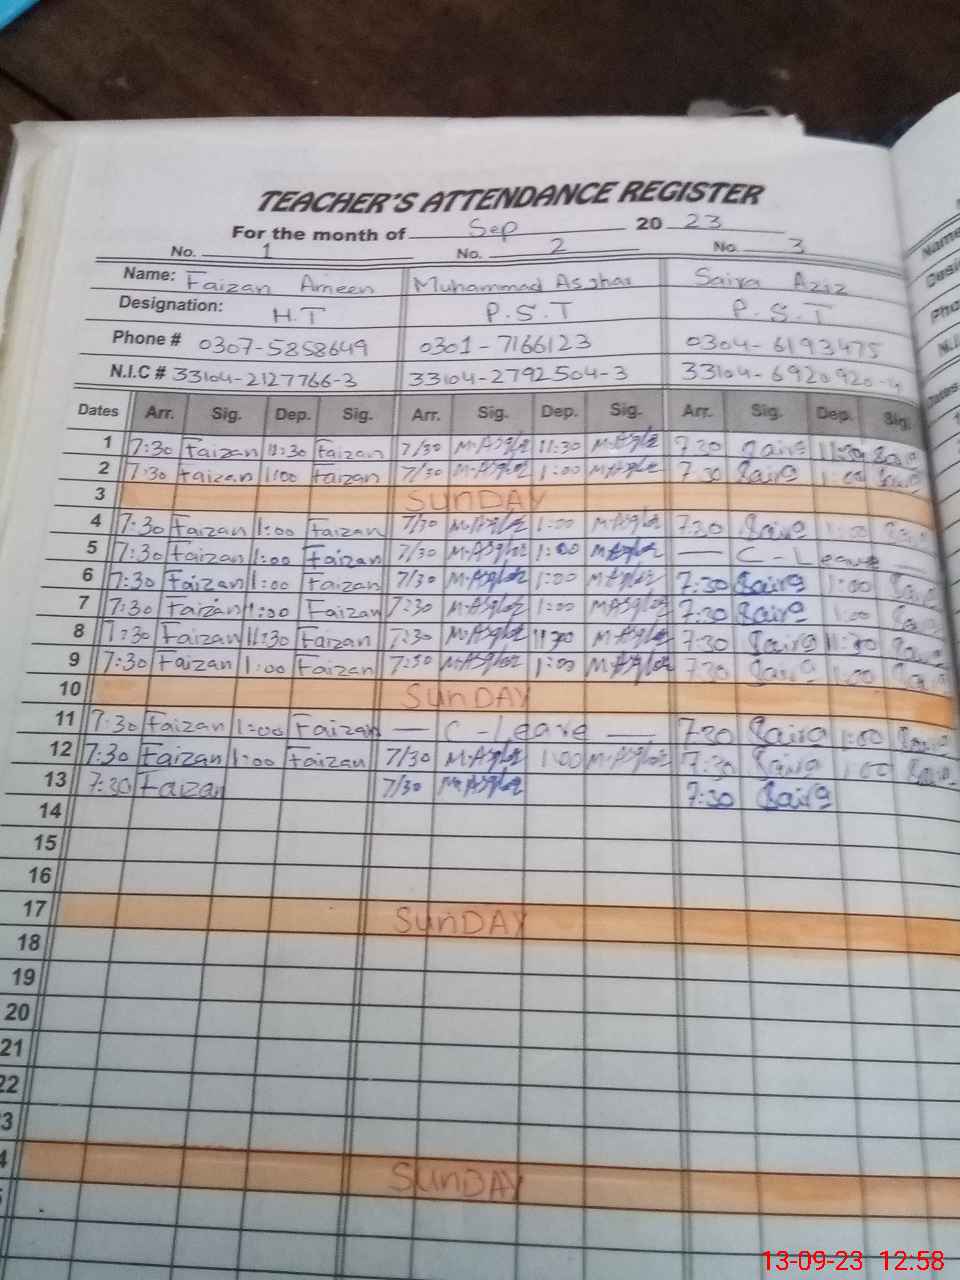 TEACHER'S ATTENDANCE REGISTER
For the month of Sep 20 23
No. 1 No. 2 No. 3
Name: Faizan Ameen Muhammad Asghar Saira Aziz
Designation: H.T P.S.T P.S.T
Phone # 0307-5858649 0301-7166123 0304-6193475
N.I.C # 33104-2127766-3 33104-2792504-3 33104-6920920-4
Dates Arr. Sig. Dep. Sig. Arr. Sig. Dep. Sig. Arr. Sig. Dep. Sig.
1 7:30 Faizan 11:30 Faizan 7/30 M.Asghar 11:30 M.Asghar 7:30 Saira 11:30 Saira
2 7:30 Faizan 1:00 Faizan 7/30 M.Asghar 1:00 M.Asghar 7:30 Saira 1:00 Saira
3 SUNDAY
4 7:30 Faizan 1:00 Faizan 7/30 M.Asghar 1:00 M.Asghar 7:30 Saira 1:00 Saira
5 7:30 Faizan 1:00 Faizan 7/30 M.Asghar 1:00 M.Asghar — C - Leave —
6 7:30 Faizan 1:00 Faizan 7/30 M.Asghar 1:00 M.Asghar 7:30 Saira 1:00 Saira
7 7:30 Faizan 1:00 Faizan 7:30 M.Asghar 1:00 M.Asghar 7:30 Saira 1:00 Saira
8 7:30 Faizan 11:30 Faizan 7:30 M.Asghar 11:30 M.Asghar 7:30 Saira 11:30 Saira
9 7:30 Faizan 1:00 Faizan 7:30 M.Asghar 1:00 M.Asghar 7:30 Saira 1:00 Saira
10 SUNDAY
11 7:30 Faizan 1:00 Faizan — C - Leave — 7:30 Saira 1:00 Saira
12 7:30 Faizan 1:00 Faizan 7/30 M.Asghar 1:00 M.Asghar 7:30 Saira 1:00 Saira
13 7:30 Faizan 7/30 M.Asghar 7:30 Saira
14
15
16
17 SUNDAY
18
19
20
21
22
3
4 SUNDAY
13-09-23 12:58